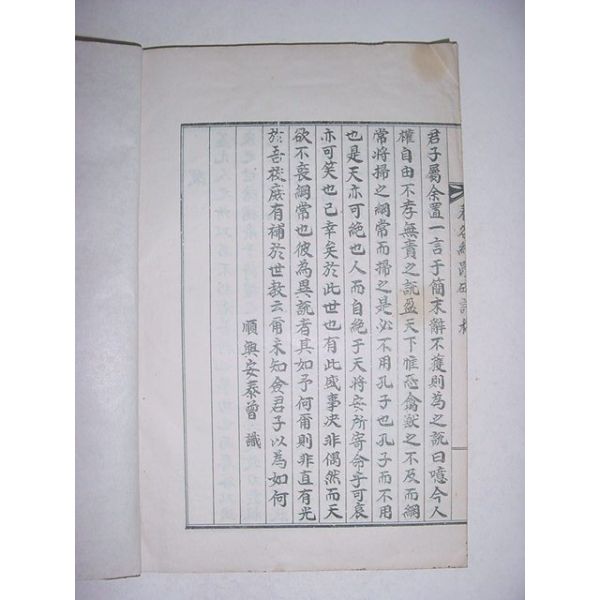 君子屬余置一言于簡末辭不獲則為之說曰噫今人
權自由不孝無責之說盈天下惟恐禽獸之不及而綱
常將掃之綱常而掃之是必不用孔子也孔子而不用
也是天亦可絶也人而自絶于天將安所寄命乎可哀
亦可笑也已幸矣於此世也有此盛事决非偶然而天
欲不喪綱常也彼為異說者其如予何爾則非直有光
於吾後底有補於世教云爾未知僉君子以為如何
順興安泰曾 識